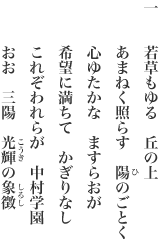 一　若草もゆる　丘の上
あまねく照らす　陽のごとく
ひ
心ゆたかな　ますらおが
希望に満ちて　かぎりなし
これぞわれらが　中村学園
おお　三陽　光輝の象徴
こうき　しるし